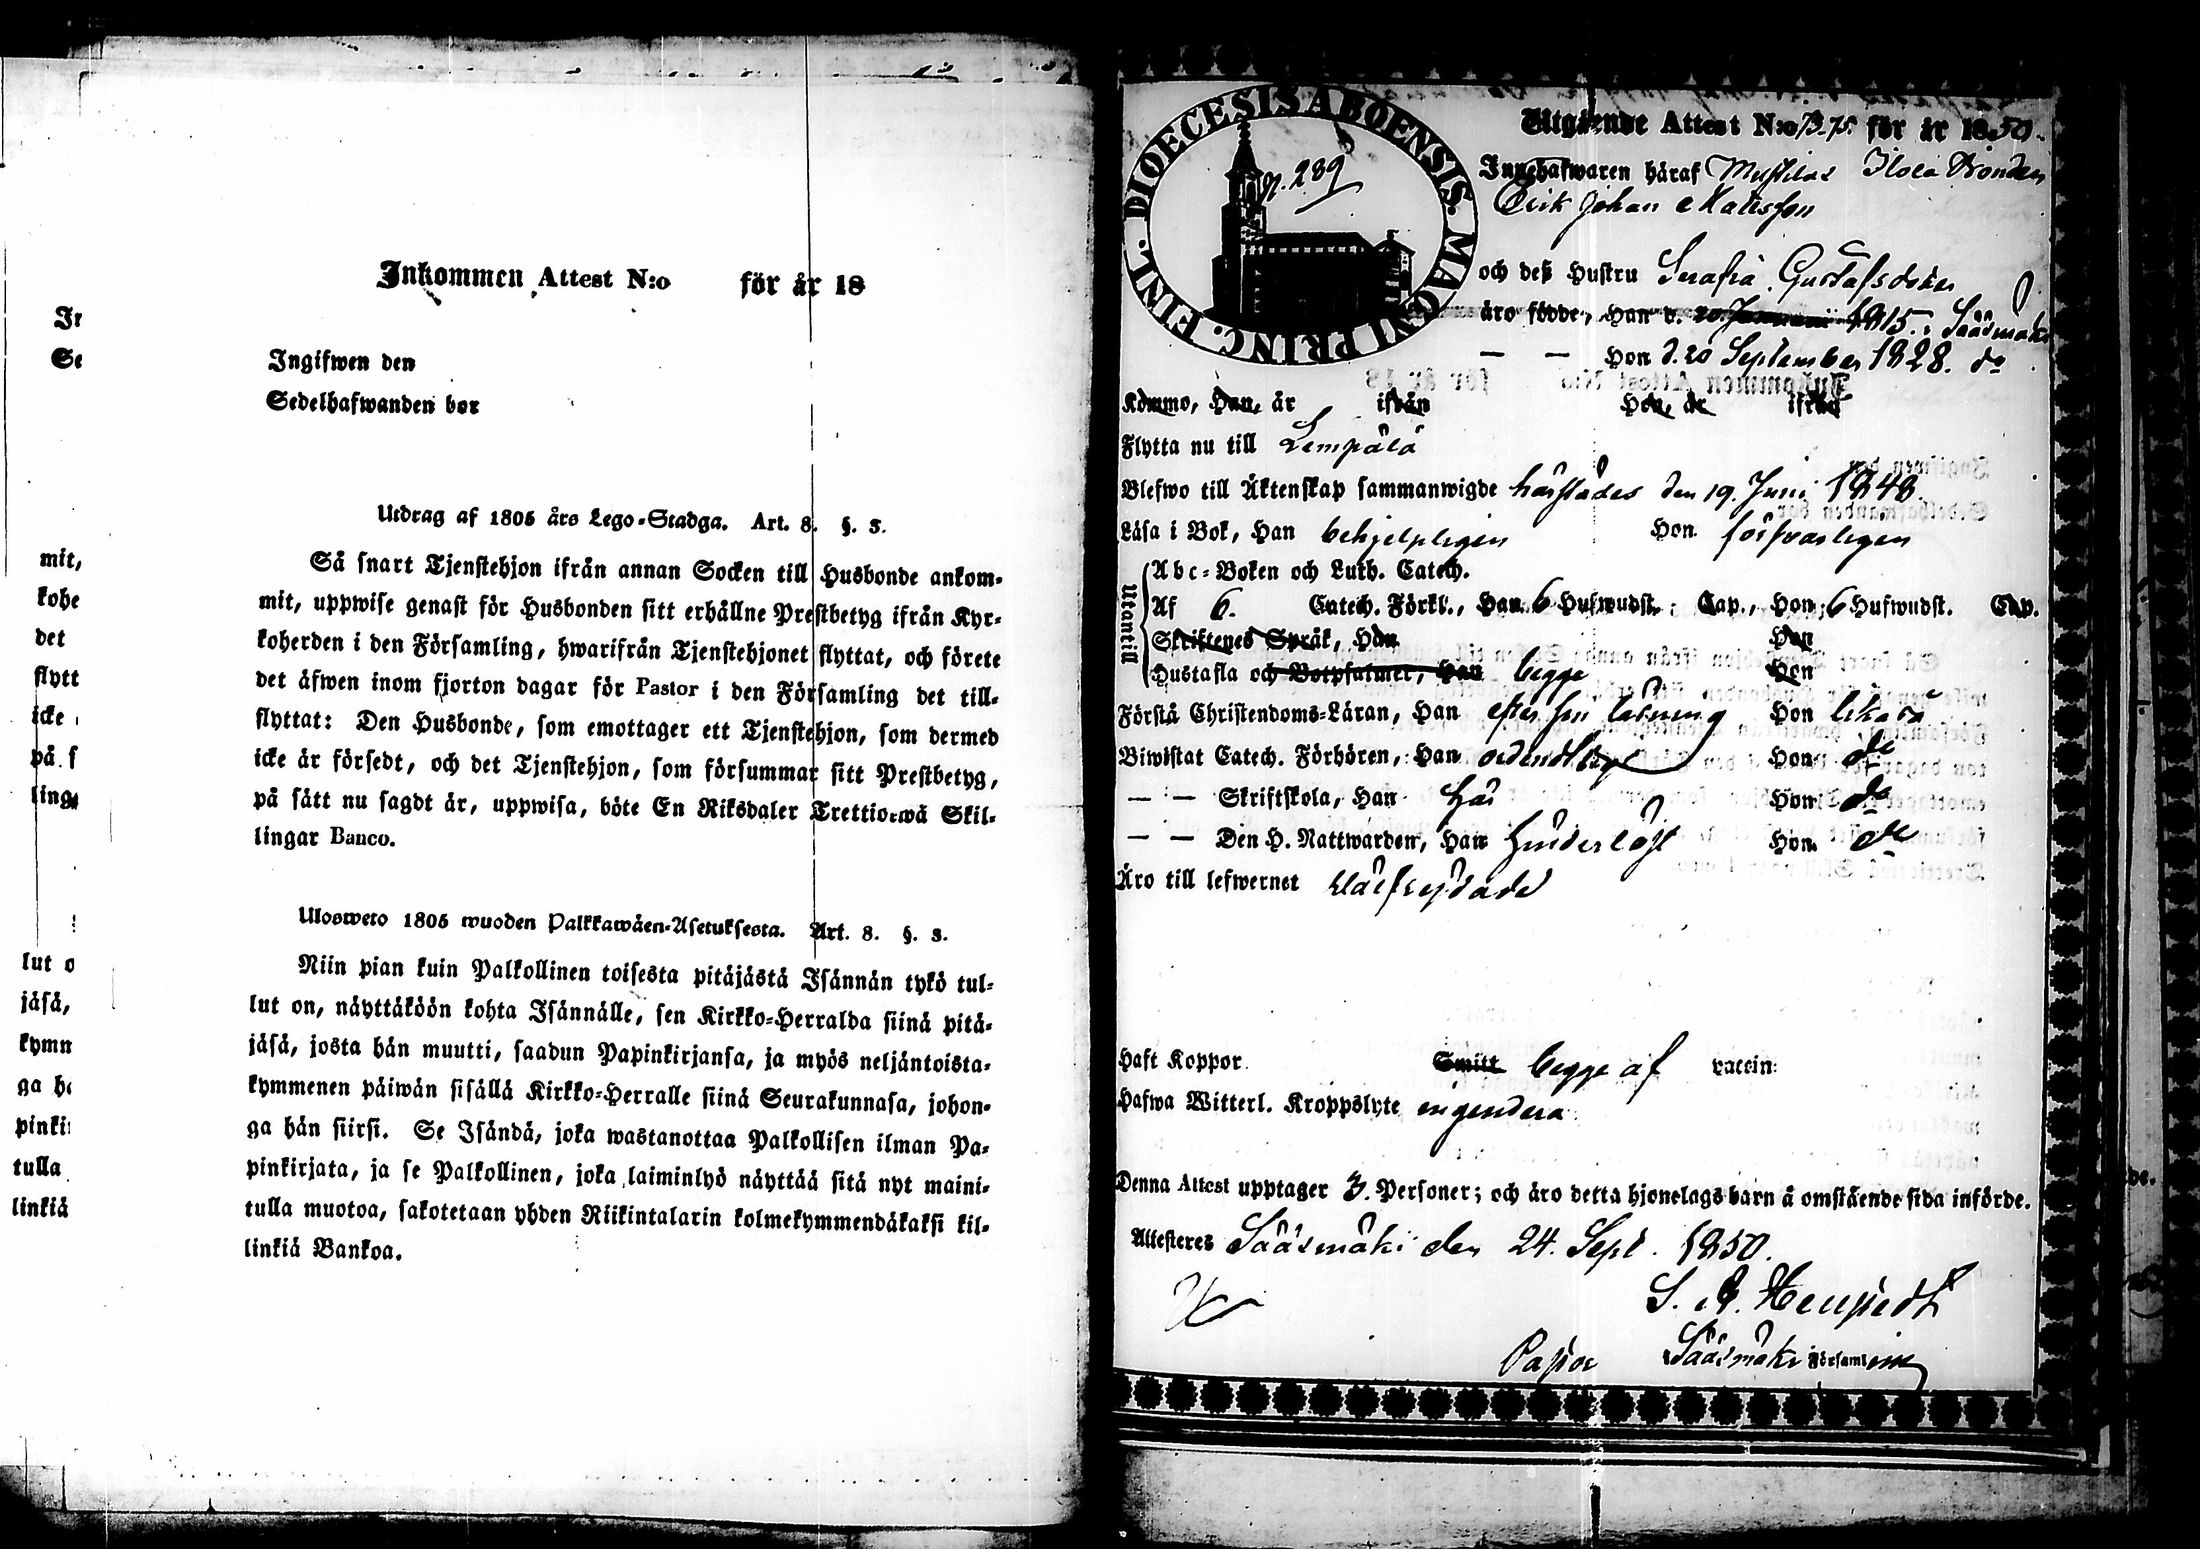 Inkommen Attest N:o för år 18
Ingifwen den
Sedelhafwanden bor
Utdrag af 1805 års Lego-Stadga. Art. 8. §. 3.
Så snart Tjenstehjon ifrån annan Socken till Husbonde ankom-
mit, uppwise genast för Husbonden sitt erhållne Prestbetyg ifrån Kyr-
koherden i den Församling, hwarifrån Tjenstehjonet flyttat, och förete
det äfwen inom fjorton dagar för Pastor i den Församling det till-
flyttat: Den Husbonde, som emottager ett Tjenstehjon, som dermed
icke är försedt, och det Tjenstehjon, som försummar sitt Prestbetyg,
på sätt nu sagdt är, uppwisa, böte En Riksdaler Trettiotwå Skil-
lingar Banco.
Ulosweto 1805 wuoden Palkkawäen-Asetuksesta. Art. 8. §. 3.
Niin pian kuin Palkollinen toisesta pitäjästä Isännän tykö tul-
lut on, näyttäköön kohta Isännälle, sen Kirkko-Herralda siinä pitä-
jäsä, josta hän muutti, saadun Papinkirjansa, ja myös neljäntoista-
kymmenen päiwän sisällä Kirkko-Herralle siinä Seurakunnasa, johon-
ga hän siirsi. Se Isändä, joka wastanottaa Palkollisen ilman Pa-
pinkirjata, ja se Palkollinen, joka laiminlyö näyttää sitä nyt maini-
tulla muotoa, sakotetaan yhden Riikintalarin kolmekymmendäkaksi kil-
linkiä Bankoa.
DIOECESIS ABOENSIS. MAGNI PRINC. FINL.
N. 289
Utgående Attest N:o 73-75 för år 1850.
Innehafwaren häraf Bonden
Erik Johan Mattsson
och deß Hustru Serafia Gustafsdotter
äro födde, Han d. 20 Januarii 1815 i Sääsmäki
— — Hon d. 20 September 1828. do
Kommo, Han, år ifrån Hon, år ifrån
Flytta nu till Lempälä
Blefwo till Äktenskap sammanwigde härstädes den 19. Juni 1848.
Läsa i Bok, Han behjelpligen Hon försvarligen
Utantill
Abc-Boken och Luth. Catech.
Af 6. Catech. Förkl., Han 6 Hufwudst. Cap., Hon 6 Hufwudst. Cap.
Skriftenes Språk, Han Hon
Hustafla och Botpsalmer, Han begge Hon
Förstå Christendoms-Läran, Han efter sin läsning Hon likaså
Biwistat Catech. Förhören, Han ordentligt Hon do
— — Skriftskola, Han här Hon do
— — Den H. Nattwarden, Han hinderlöst Hon do
Äro till lefwernet välfrejdade
Haft Koppor Smitt begge af vaccin:
Hafwa Witterl. Kroppslyte ingendera
Denna Attest upptager 3. Personer; och äro detta hjonelags barn å omstående sida införde.
Attesteres Sääsmäki den 24. Sept. 1850.
Pastor Sääsmäki Församling